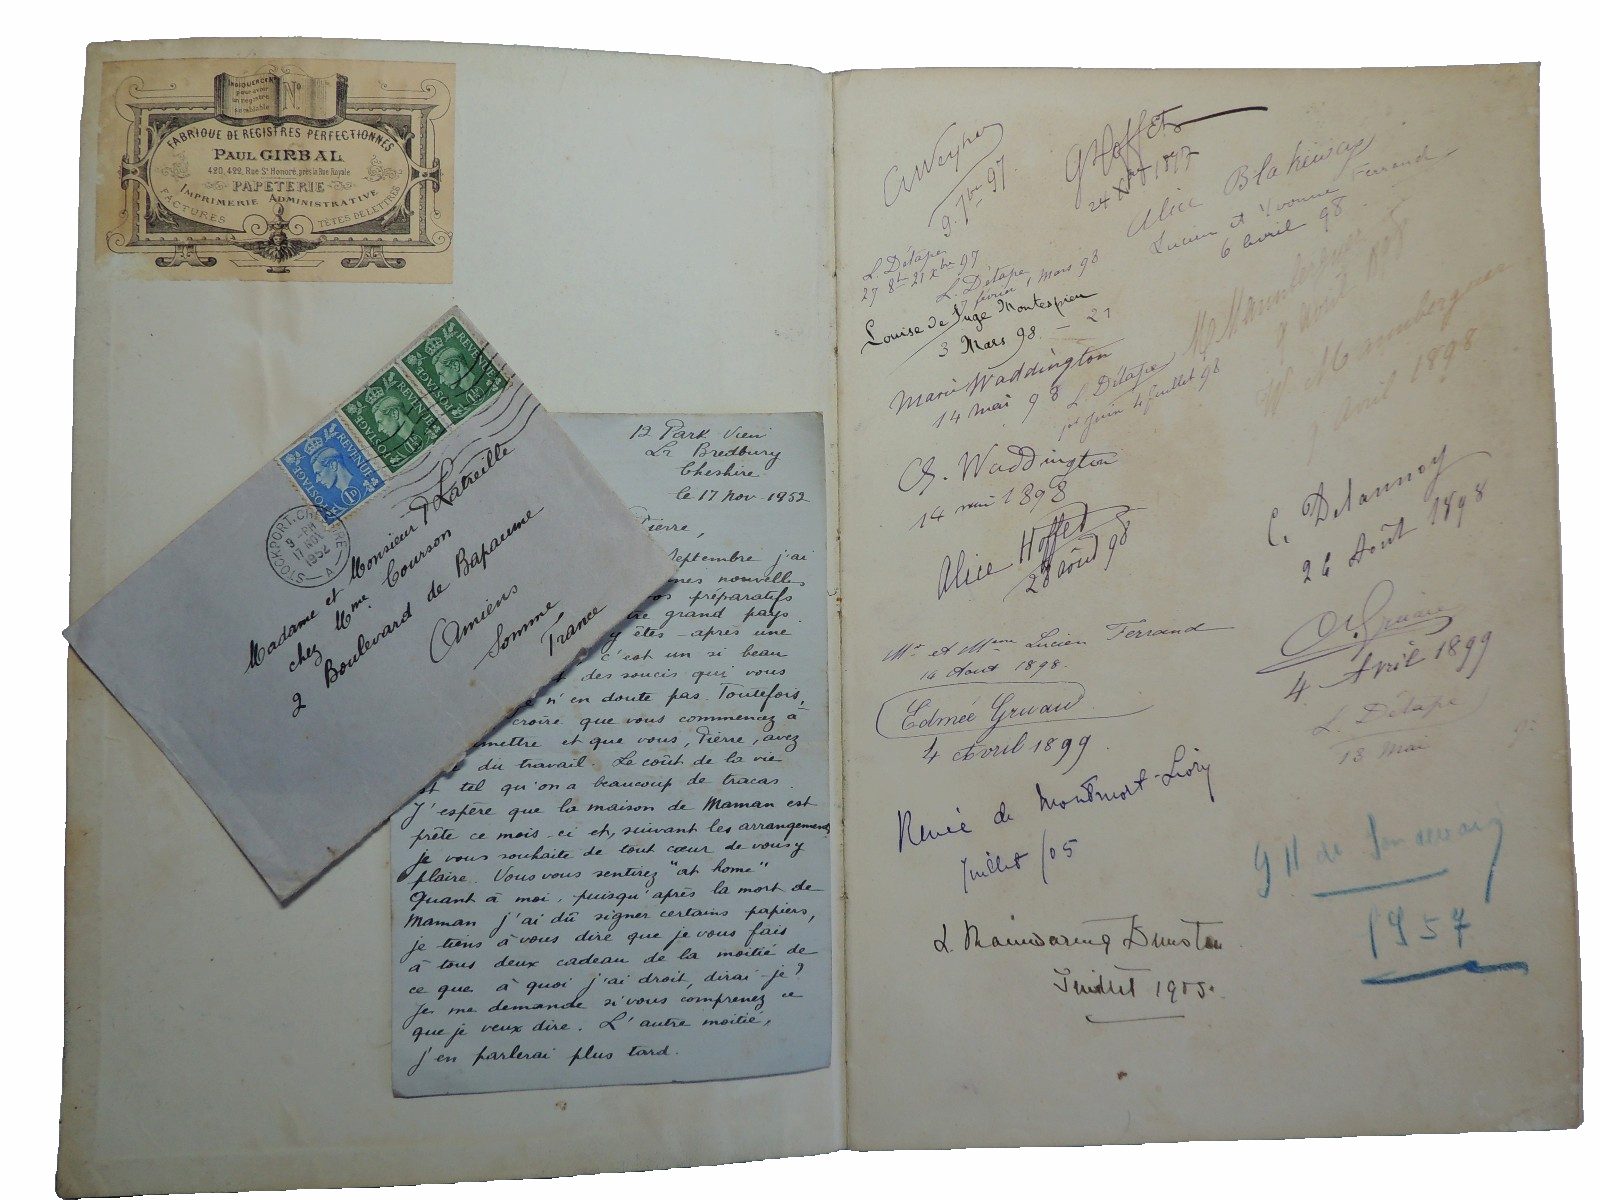 INDIQUER CE
pour avoir
un registre
semblable
N°
FABRIQUE DE REGISTRES PERFECTIONNÉS
PAUL GIRBAL
420, 422, Rue St Honoré, près la Rue Royale
PAPETERIE
IMPRIMERIE ADMINISTRATIVE
FACTURES
TÊTES DE LETTRES
POSTAGE REVENUE
1D
POSTAGE REVENUE
1½D
POSTAGE REVENUE
1½D
STOCKPORT. CHESHIRE
9 - PM
17 NOV
1952
A
Madame et Monsieur P Latreille
chez Mme Courson
2 Boulevard de Bapaume
Amiens
Somme
France
12 Park View
Lr Bredbury
Cheshire
le 17 Nov. 1952
Pierre,
septembre j'ai
nouvelles
préparatifs
grand pays.
y êtes - après une
c'est un si beau
des soucis qui vous
n'en doute pas. Toutefois,
croire que vous commencez à
et que vous, Pierre, avez
du travail. Le coût de la vie
st tel qu'on a beaucoup de tracas.
J'espère que la maison de Maman est
prête ce mois-ci et, suivant les arrangements
je vous souhaite de tout cœur de vous y
plaire. Vous vous sentirez "at home"
Quant à moi, puisqu'après la mort de
Maman j'ai dû signer certains papiers,
je tiens à vous dire que je vous fais
à tous deux cadeau de la moitié de
ce que à quoi j'ai droit, dirai-je?
Je me demande si vous comprenez ce
que je veux dire. L'autre moitié,
j'en parlerai plus tard.
9. 7bre 97.
G Hoffet
24 Xbre 1897
Alice Blakeway
Lucien et Yvonne Ferrand
6 Avril 98
L. Détape
27 8bre 21 Xbre 97
L. Détape
17 février, 1 Mars 98
Louise de Montespieu
3 Mars 98. - 21
Marie Waddington
14 mai 98
L. Détape
1er Juin 4 Juillet 98
7 avril 1898
W. Mannberger
7 avril 1898
Ch. Waddington
14 mai 1898
Alice Hoffet
28 août 98
C. Delannoy
26 Août 1898
Mr et Mme Lucien Ferrand
14 Aout 1898.
Gruau
4 Avril 1899
Edmée Gruau
4 Avril 1899
L. Détape
13 Mai
Renée de Montmort-
Juillet /05
G H de
1957
L. Mainwaring Dunstan
Juillet 1905.